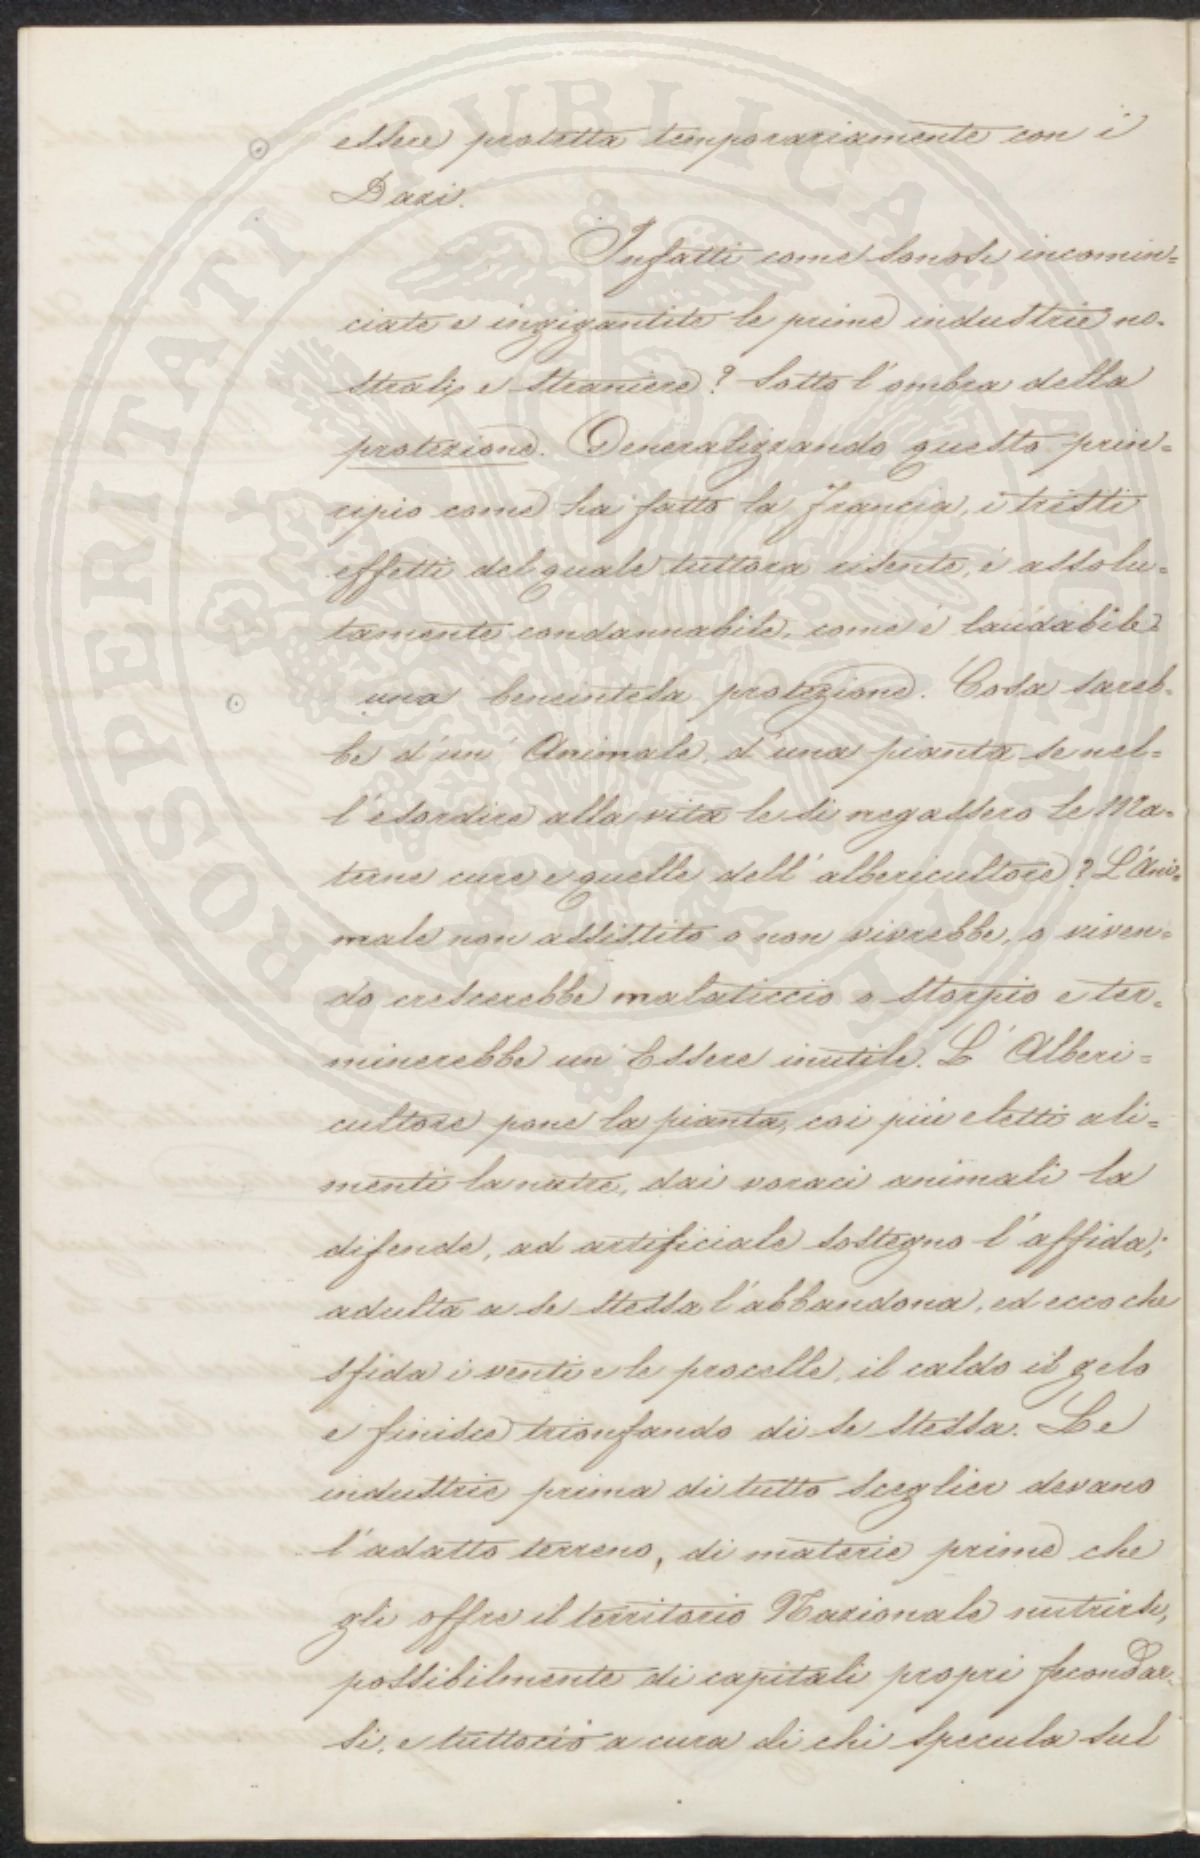 essere protetta temporariamente con i
Dazi.
Infatti come sonosi incomin=
ciate e ingigantite le prime industrie no=
strali e straniere? Sotto l'ombra della
protezione. Generalizzando questo prin=
cipio come ha fatto la Francia, i tristi
effetti del quale tuttora risente, è assolu=
tamente condannabile, come è laudabile
una beneintesa protezione. Cosa sareb=
be d'un' Animale, d'una pianta se nel=
l'esordire alla vita le si negassero le Ma=
terne cure e quelle dell'albericultore? L'Ani=
male non assistito o non vivrebbe, o viven=
do crescerebbe malaticcio o storpio e ter=
minerebbe un' Essere inutile. L'Alberi=
cultore pone la pianta, coi più eletti ali=
menti la nutre, dai voraci animali la
difende, ad artificiale sostegno l'affida;
adulta a se stessa l'abbandona, ed ecco che
sfida i venti e le procelle, il caldo il gelo
e finisce trionfando di se stessa. Le
industrie prima di tutto sceglier devano
l'adatto terreno, di materie prime che
gli offre il territorio Nazionale nutrirsi,
possibilmente di capitali propri fecondar=
si, e tuttociò a cura di chi specula sul
PROSPERITATI PVBLICAE AVGENDAE